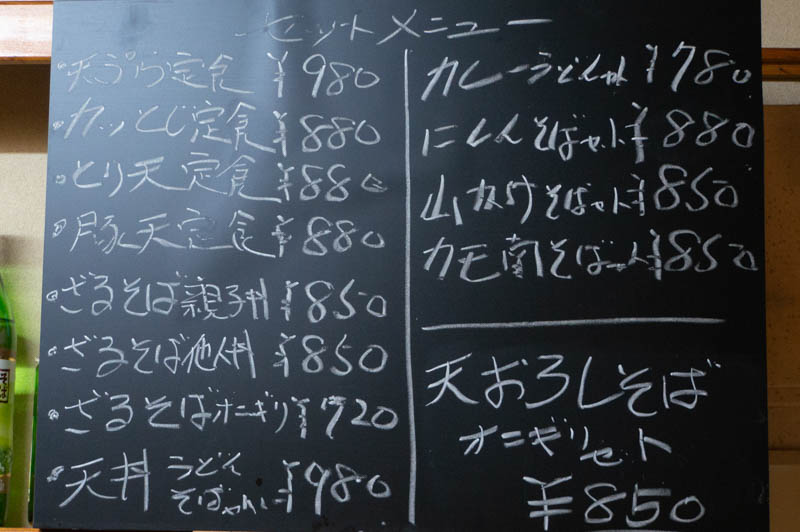 セットメニュー
天ぷら定食 ¥980
カツとじ定食 ¥880
とり天定食 ¥880
豚天定食 ¥880
ざるそば親子丼 ¥850
ざるそば他人丼 ¥850
ざるそばオニギリ ¥720
天丼 うどん
そばセット ¥980
カレーうどんセット ¥780
にしんそばセット ¥880
山かけそばセット ¥850
カモ南そばセット ¥850
天おろしそば
オニギリセット
¥850